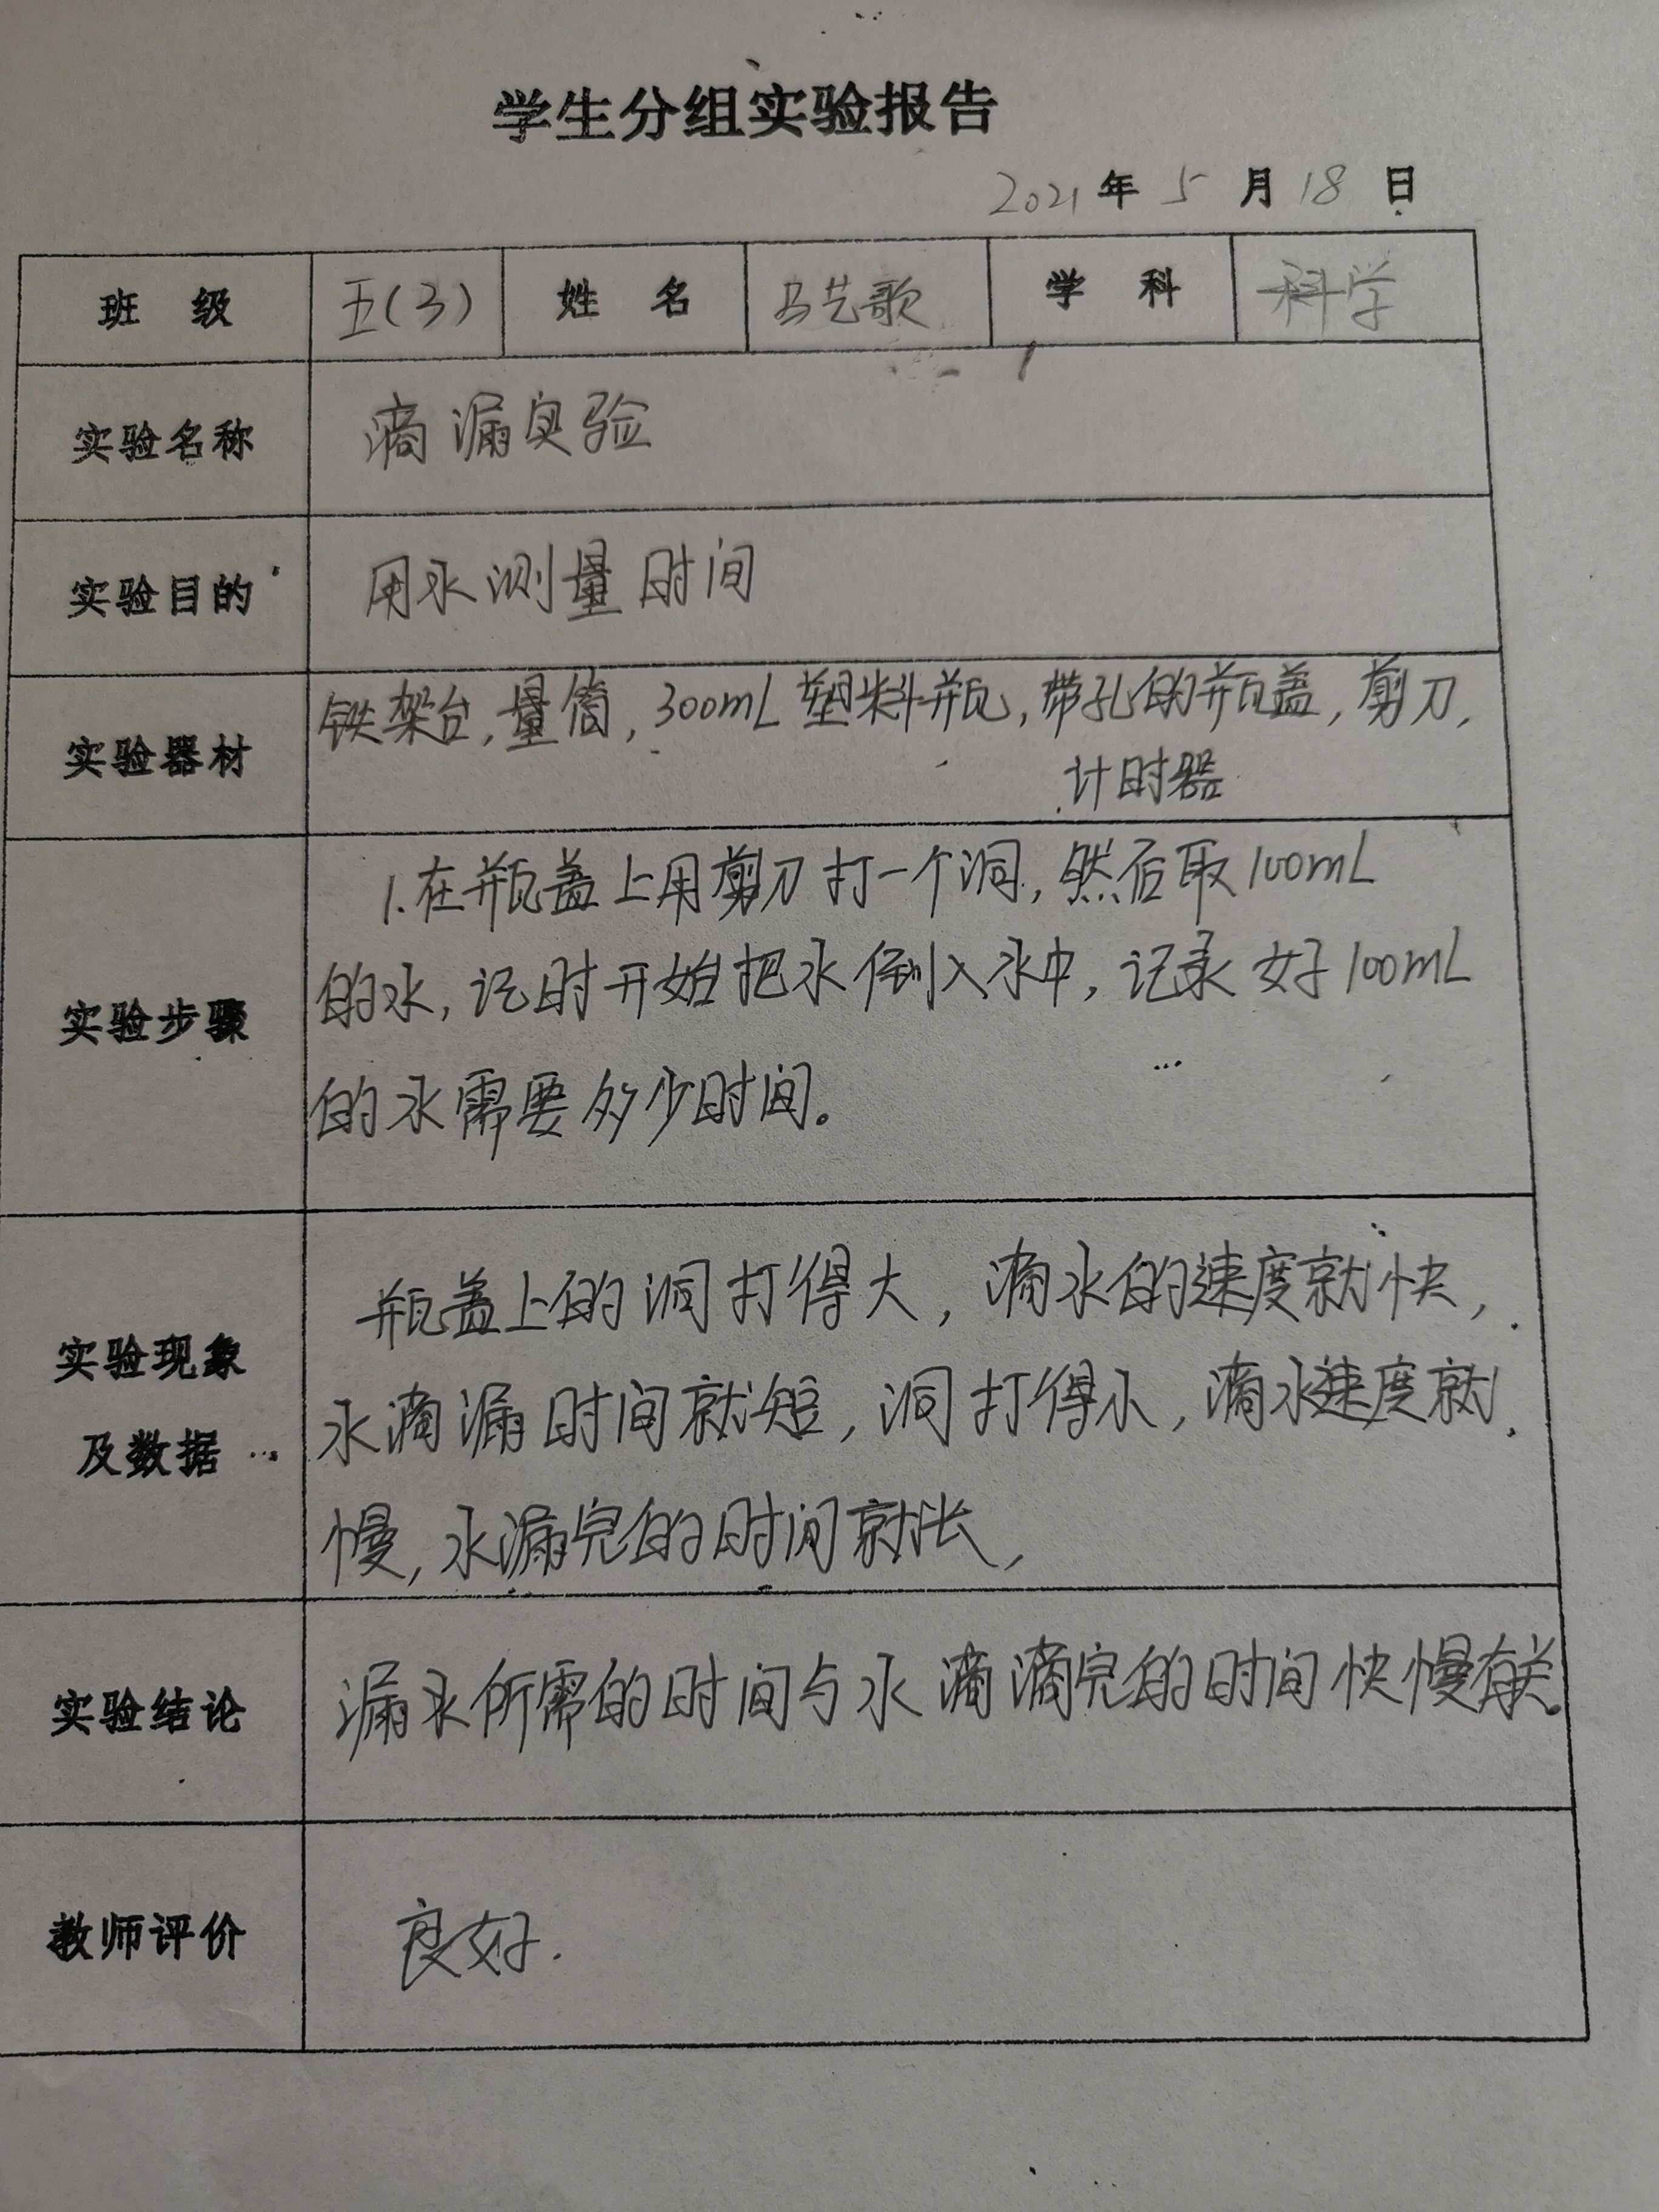 学生分组实验报告
2021年5月18日
班级 五(3) 姓名 马艺歌 学科 科学
实验名称 滴漏实验
实验目的 用水测量时间
实验器材 铁架台,量筒,300mL塑料瓶,带孔的瓶盖,剪刀,
计时器
1.在瓶盖上用剪刀打一个洞,然后取100mL
实验步骤 的水,记时开始把水倒入水中,记录好100mL
的水需要多少时间。
瓶盖上的洞打得大,滴水的速度就快,
实验现象
水滴漏时间就短,洞打得小,滴水速度就
及数据
慢,水漏完的时间就长,
实验结论 漏水所需的时间与水滴滴完的时间快慢有关。
教师评价 良好.